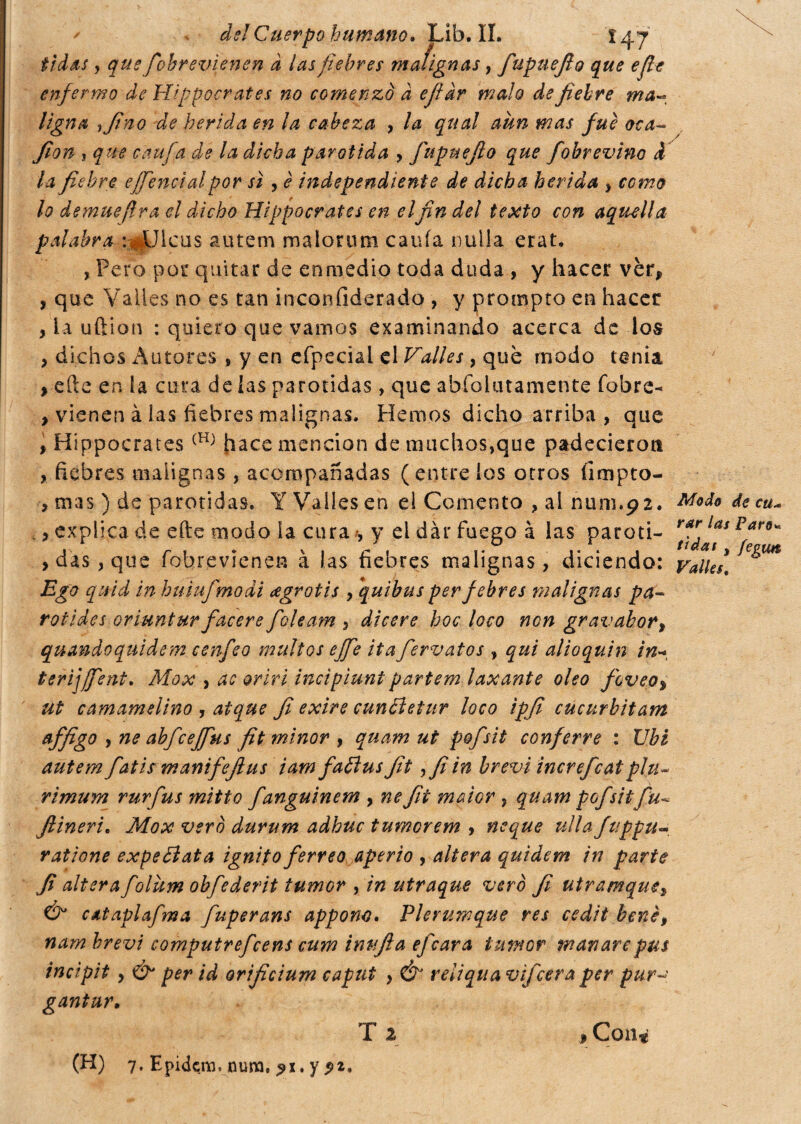 del Cuerpo humano. Lib. II. 147
tidas, que ſobrevienen à las fiebres malignas, ſupueſto que eſte
enfermo de Hippocrates no comenzò à eſtàr malo de fiebre ma-
ligna, ſino de herida en la cabeza, la qual aun mas fuè oca-
ſion, que cauſa de la dicha parotida, ſupueſto que ſobrevino à
la fiebre eſſencial por sì, è independiente de dicha herida, como
lo demueſtra el dicho Hippocrates en el fin del texto con aquella
palabra: Ulcus autem malorum cauſa nulla erat.
, Pero por quitar de enmedio toda duda, y hacer vèr,
, que Valles no es tan inconſiderado, y prompto en hacer
, la uſtion: quiero que vamos examinando acerca de los
, dichos Autores, y en eſpecial el Valles, què modo tenia
, eſte en la cura de las parotidas, que abſolutamente ſobre-
, vienen à las fiebres malignas. Hemos dicho arriba, que
, Hippocrates (H) hace mencion de muchos, que padecieron
, fiebres malignas, acompañadas (entre los otros ſimpto-
, mas) de parotidas. Y Valles en el Comento, al num. 92.
, explica de eſte modo la cura, y el dàr fuego à las paroti-
, das, que ſobrevienen à las fiebres malignas, diciendo:
Modo de cu-
rar las Paro-
tidas, ſegun
Valles.
Ego quid in huiuſmodi ægrotis, quibus per febres malignas pa-
rotides oriuntur facere ſoleam, dicere hoc loco non gravabor,
quandoquidem cenſeo multos eſſe ita ſervatos, qui alioquin in-
terijſſent. Mox, ac oriri incipiunt partem laxante oleo foveo,
ut camamelino, atque ſi exire cunctetur loco ipſi cucurbitam
affigo, ne abſceſſus ſit minor, quam ut poſsit conferre: Ubi
autem ſatis manifeſtus iam factus ſit, ſi in brevi increſcat plu-
rimum rurſus mitto ſanguinem, ne ſit maior, quam poſsit ſu-
ſtineri. Mox verò durum adhuc tumorem, neque ulla ſuppu-
ratione expectata ignito ferreo aperio, altera quidem in parte
ſi altera ſolùm obſederit tumor, in utraque verò ſi utramque,
& cataplaſma ſuperans appono. Plerumque res cedit benè,
nam brevi computreſcens cum inuſta eſcara tumor manare pus
incipit, & per id orificium caput, & reliqua viſcera per pur-
gantur.
T 2 , Con-
(H) 7. Epidem. num. 91. y 92.